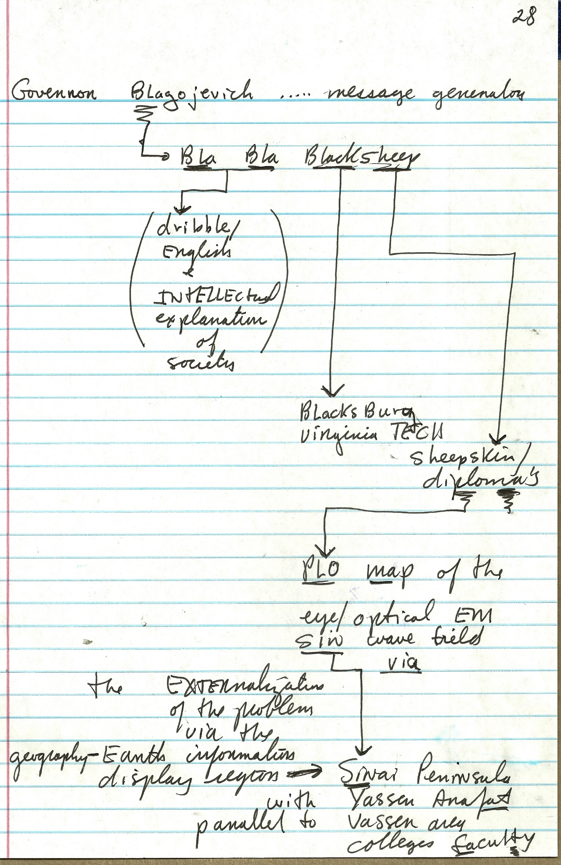 28
Governor Blagojevich ..... message generator
Bla Bla Blacksheep
dribble/
English
+
INTELLECTual
explanation
of
society
BLacksBurg
virginia TECH
sheepskin/
diploma's
PLO map of the
eye/optical EM
sin wave field
via
the EXTERNalization
of the problem
via the
geography-Earth information
display region → Sinai Peninsula
with Yasser Arafat
parallel to Vasser area
colleges faculty